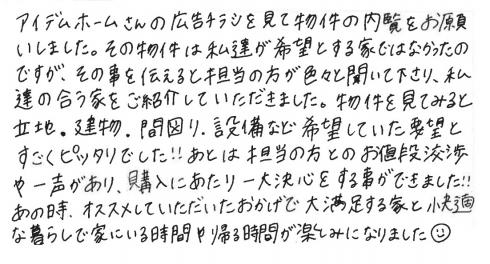 アイデムホームさんの広告チラシを見て物件の内覧をお願
いしました。その物件は私達が希望とする家ではなかったの
ですが、その事を伝えると担当の方が色々と聞いて下さり、私
達の合う家をご紹介していただきました。物件を見てみると
立地・建物・間図り・設備など希望していた要望と
すごくピッタリでした!!あとは担当の方とのお値段交渉
や一声があり、購入にあたり一大決心をする事ができました!!
あの時、オススメしていただいたおかげで大満足する家と快適
な暮らしで家にいる時間や帰る時間が楽しみになりました☺